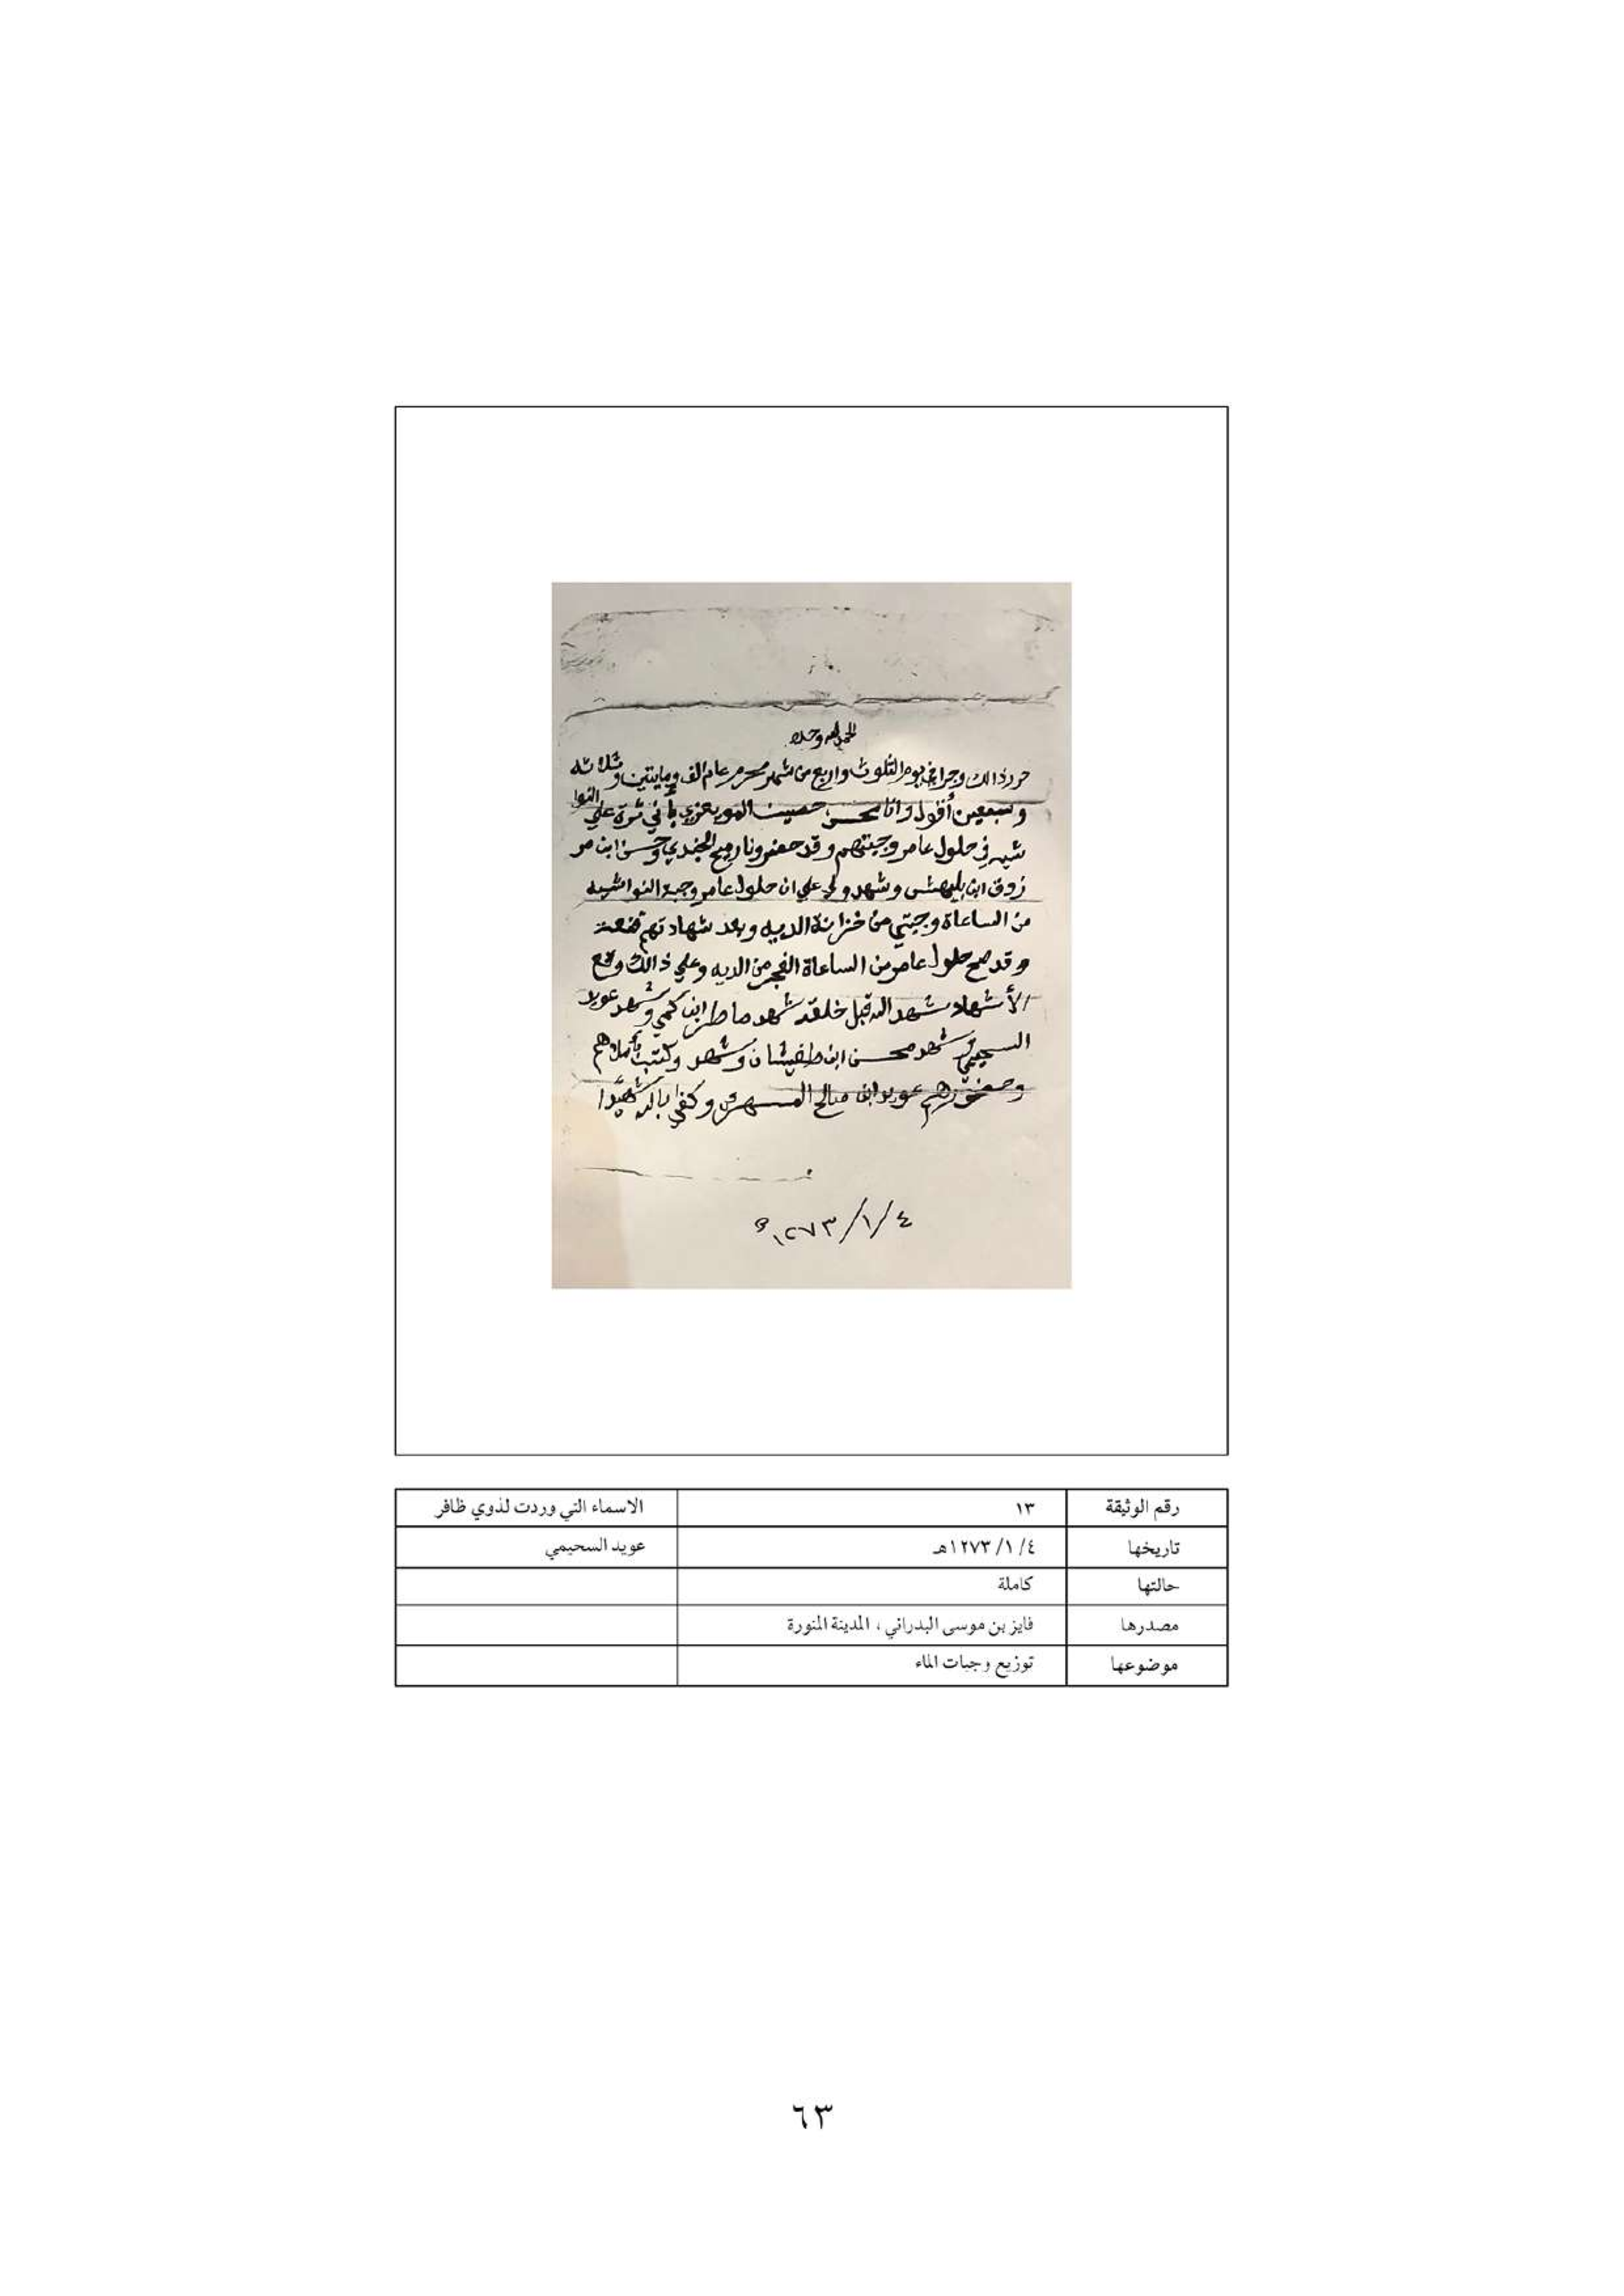 الحمد لله وحده
حرر ذالك وجرا في يوم الثلوث واربع من شهر محرم عام الف ومايتين وثلاثه
وسبعين أقول وانا محسن حصيف المويعزي بأني ثرة علي النوا
شيه في حلول عامر وجبتهم وقد حضرونا رميح الجندي وحسن ابن مر
زوق ابن بليهش وشهدو لي علي ان حلول عامر وجبة النواشيه
من الساعاة وجبتي من خزانة الديه وبعد شهادتهم قنعة
وقد صح حلول عامر من الساعاة الفجر من الديه وعلي ذالك وقع
الأشهاد شهد الله قبل خلقه شهد ماطر ابن كمي وشهد عويد
السحيمي وشهد محسن ابن طفيشان وشهد وكتب بأملاهم
وحضورهم عويد ابن صالح وكفى بالله شهيدًا
٤/١/١٢٧٣ه
رقم الوثيقة ١٣ الاسماء التي وردت لذوي ظافر
تاريخها ٤/ ١/ ١٢٧٣هـ عويد السحيمي
حالتها كاملة
مصدرها فايز بن موسى البدراني ، المدينة المنورة
موضوعها توزيع وجبات الماء
٦٣